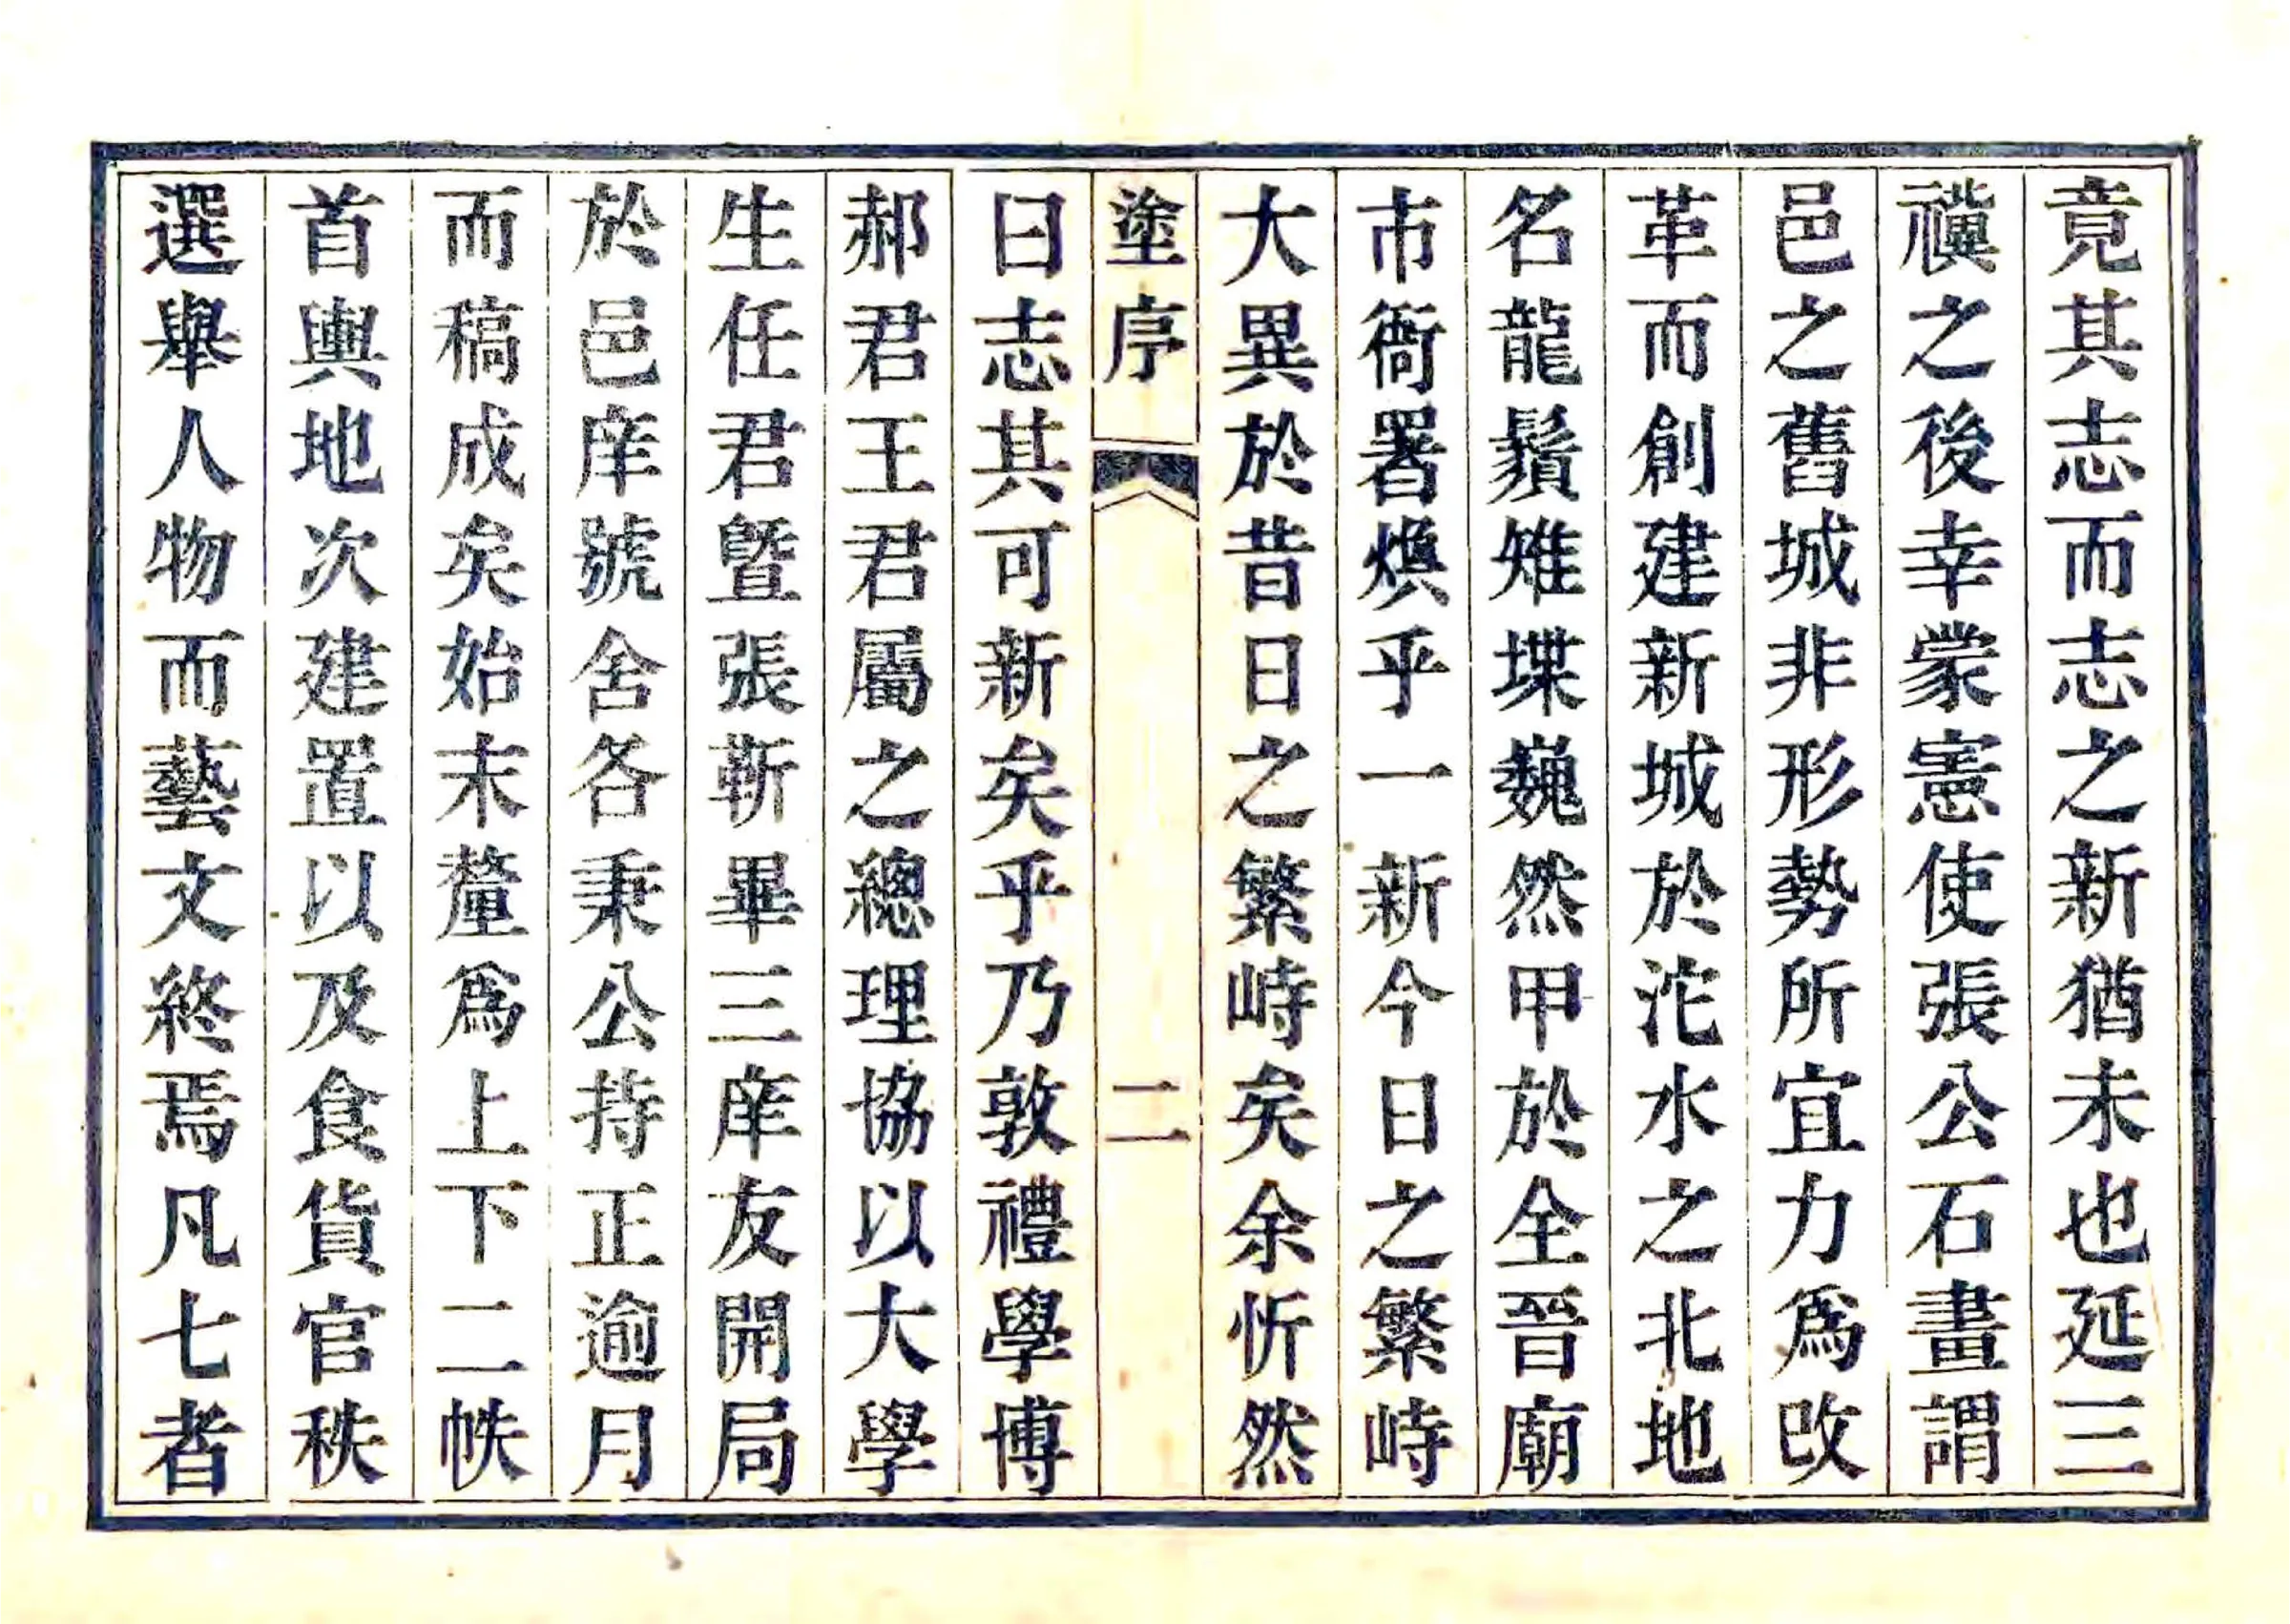 竟其志而志之新猶未也延三
禩之後幸蒙憲使張公石畫謂
邑之舊城非形勢所宜力爲改
革而創建新城於沱水之北地
名龍鬚雉堞巍然甲於全晉廟
市衙署煥乎一新今日之繁峙
大異於昔日之繁峙矣余忻然
塗序 二
曰志其可新矣乎乃敦禮學博
郝君王君屬之總理協以大學
生任君暨張靳畢三庠友開局
於邑庠號舍各秉公持正逾月
而稿成矣始末釐爲上下二帙
首輿地次建置以及食貨官秩
選舉人物而藝文終焉凡七者